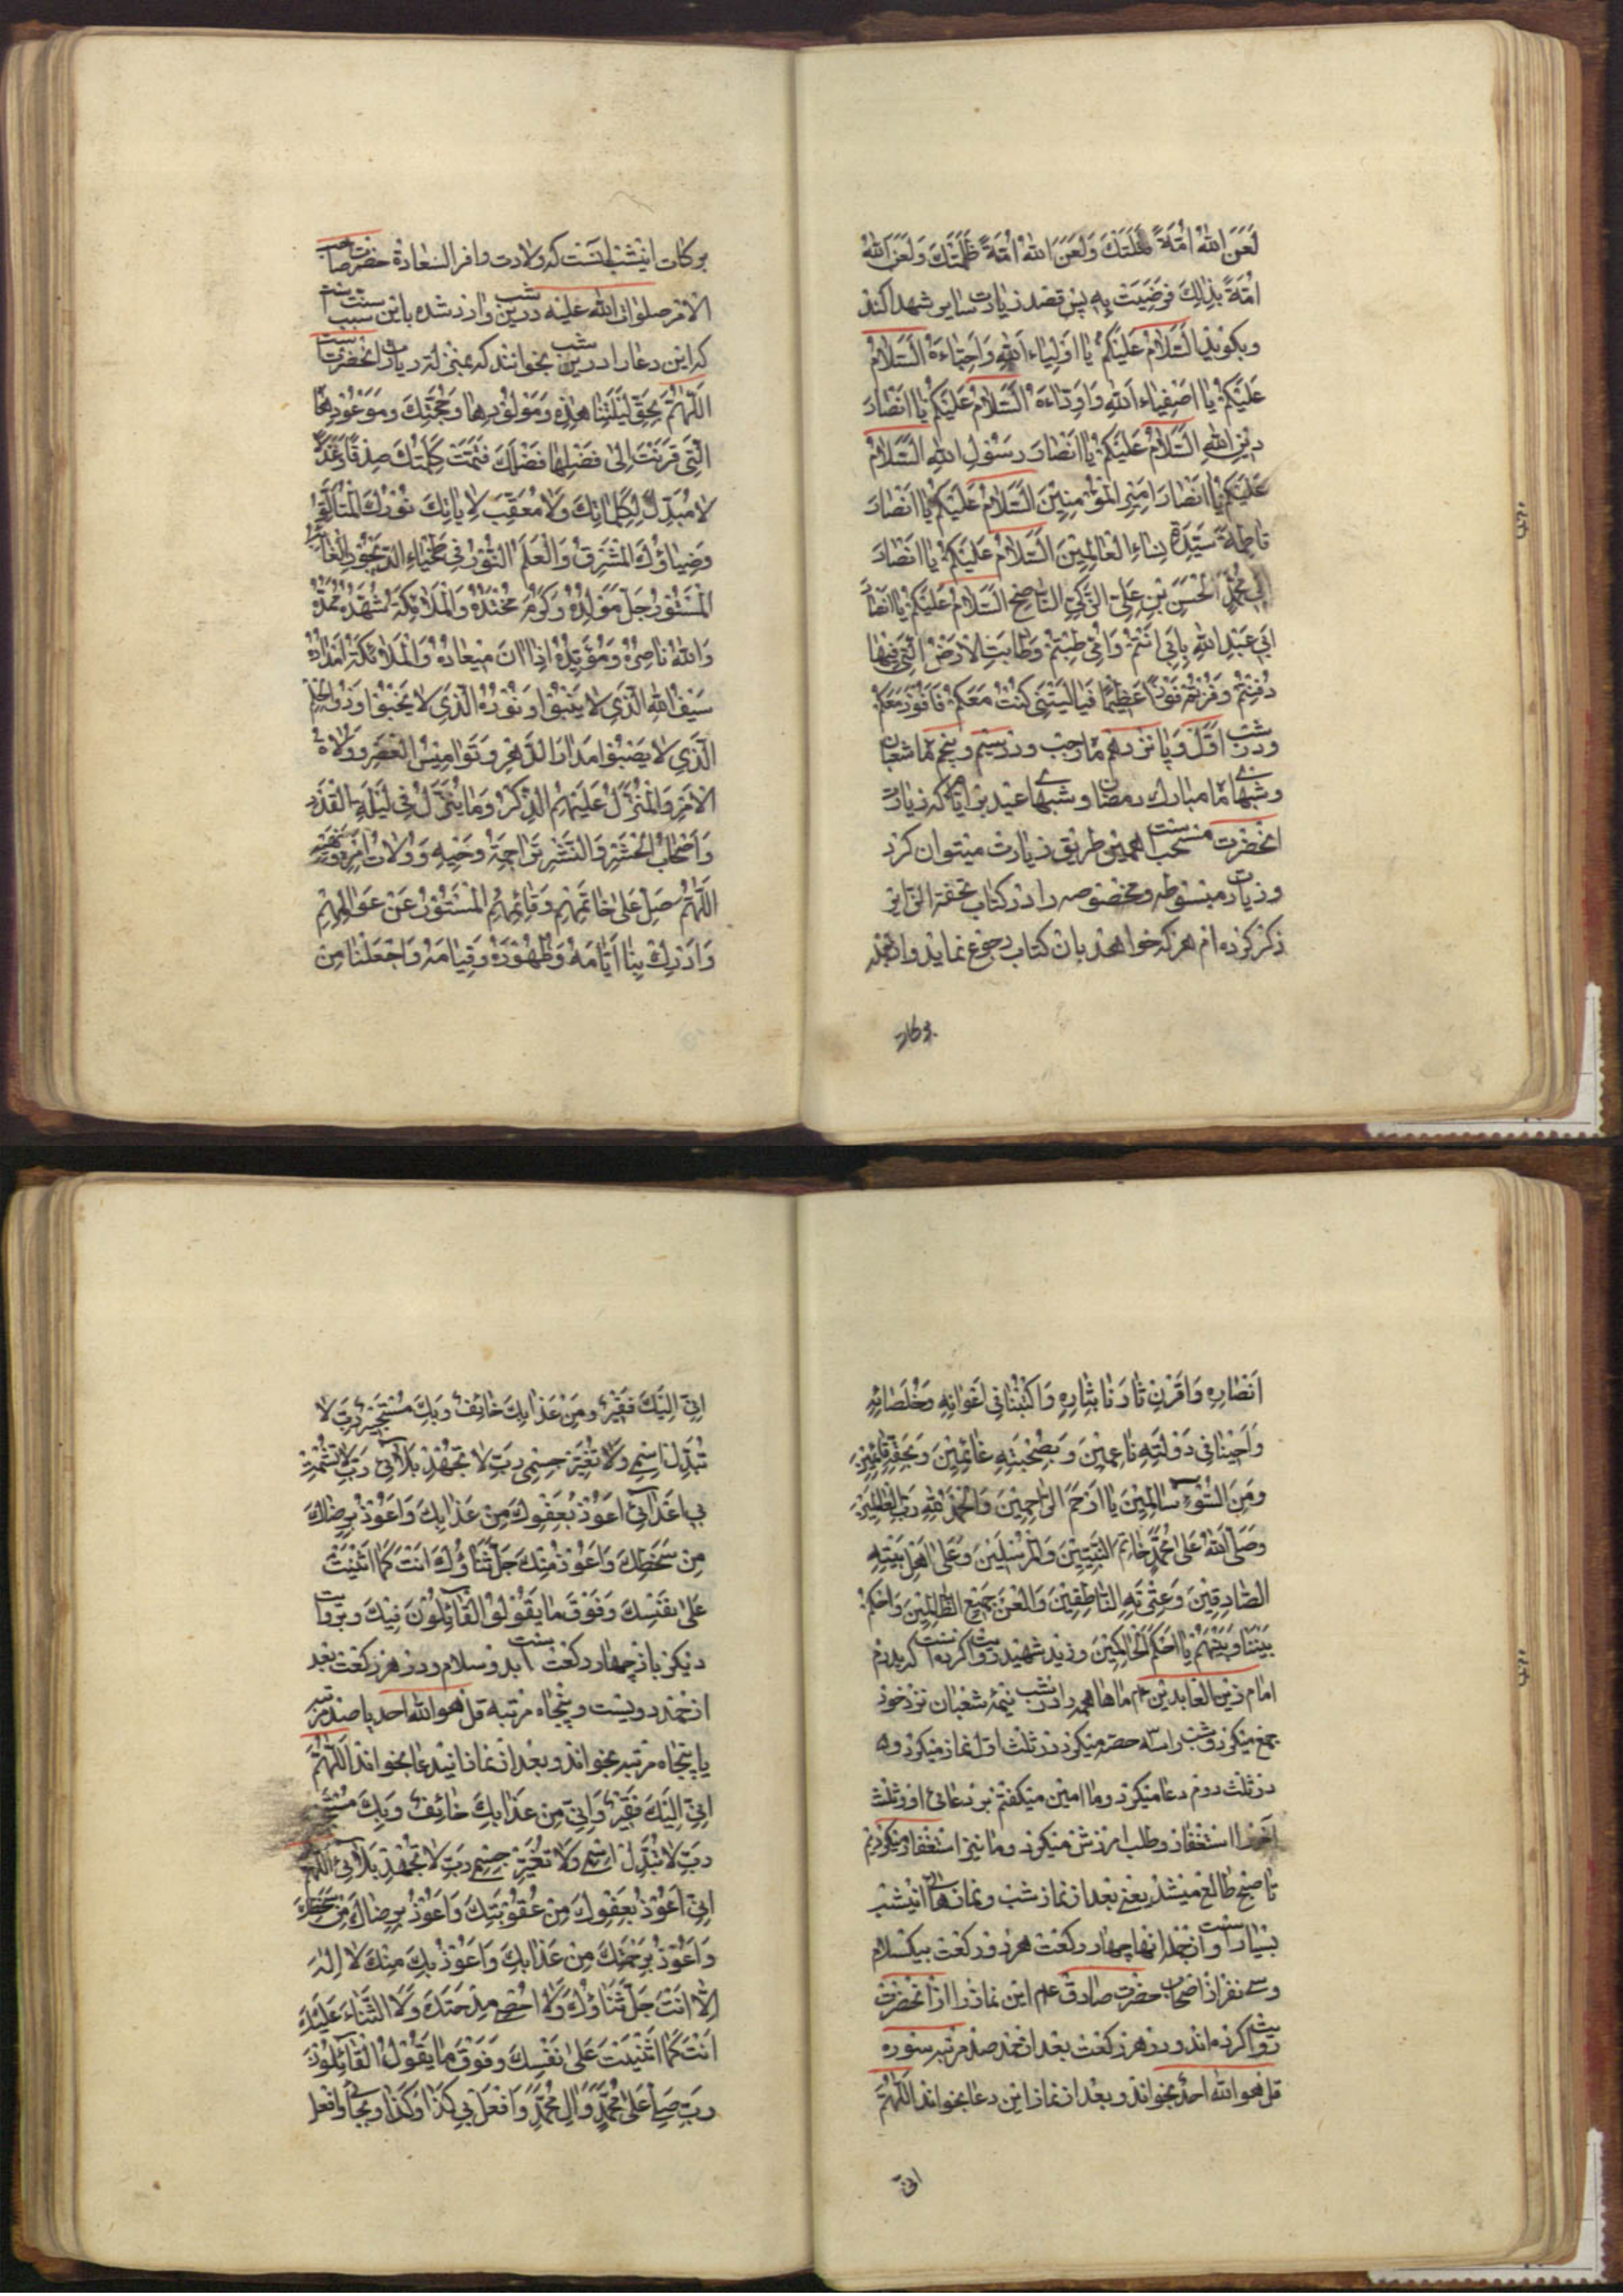 لَعَنَ اللهُ اُمَّةً قَتَلَتْكَ وَلَعَنَ اللهُ اُمَّةً ظَلَمَتْكَ وَلَعَنَ اللهُ
اُمَّةً بِذٰلِكَ فَرَضِيَتْ بِهِ پس قصد زیارت سایر شهدا کند
وبکوید اَلسَّلامُ عَلَيْكُمْ يا اَوْلِياءَ اللهِ وَاَحِبّاءَهُ اَلسَّلامُ
عَلَيْكُمْ يا اَصْفِياءَ اللهِ وَاَوِدّاءَهُ اَلسَّلامُ عَلَيْكُمْ يا اَنْصارَ
دينِ اللهِ اَلسَّلامُ عَلَيْكُمْ يا اَنْصارَ رَسُولِ اللهِ اَلسَّلامُ
عَلَيْكُمْ يا اَنْصارَ اَميرِ الْمُؤْمِنينَ اَلسَّلامُ عَلَيْكُمْ يا اَنْصارَ
فاطِمَةَ سَيِّدَةِ نِساءِ الْعالَمينَ اَلسَّلامُ عَلَيْكُمْ يا اَنْصارَ
اَبي مُحَمَّدٍ الْحَسَنِ بْنِ عَلِيٍّ الزَّكِيِّ النّاصِحِ اَلسَّلامُ عَلَيْكُمْ يا اَنْصارَ
اَبي عَبْدِ اللهِ بِاَبي اَنْتُمْ وَاُمّي طِبْتُمْ وَطابَتِ الْاَرْضُ الَّتي فيها
دُفِنْتُمْ وَفُزْتُمْ فَوْزاً عَظيماً فَيا لَيْتَني كُنْتُ مَعَكُمْ فَاَفُوزَ مَعَكُمْ
ودر شب اوّل و پانزدهم ماه رجب و روز سیم و پنجم ماه شعبان
وشبهای ماه مبارك رمضان و شبهای عید براتها که زیارت
انحضرت مستحب است بهمین طریق زیارت میتوان کرد
وزیارت مبسوطه ومخصوصه را در کتاب تحفة الزایر
ذکر کرده ام هر که خواهد بان کتاب رجوع نماید و از جمله
برکات
برکات اینشب انست که ولادت وافر السعادة حضرت صاحب
الامر صلوات الله علیه درین شب وارد شده باین سبب سنت است
که این دعا را درین شب بخوانند که بمنزله زیارت انحضرت است
اَللّٰهُمَّ بِحَقِّ لَيْلَتِنا هٰذِهِ وَمَوْلُودِها وَحُجَّتِكَ وَمَوْعُودِهَا
الَّتي قَرَنْتَ اِلىٰ فَضْلِها فَضْلَكَ فَتَمَّتْ كَلِمَتُكَ صِدْقاً وَعَدْلاً
لا مُبَدِّلَ لِكَلِماتِكَ وَلا مُعَقِّبَ لِاٰياتِكَ نُورُكَ الْمُتَاَلِّقُ
وَضِياؤُكَ الْمُشْرِقُ وَالْعَلَمُ النُّورُ في طَخْياءِ الدَّيْجُورِ الْغائِبُ
الْمَسْتُورُ جَلَّ مَوْلِدُهُ وَكَرُمَ مَحْتِدُهُ وَالْمَلائِكَةُ شُهَّدُهُ
وَاللهُ ناصِرُهُ وَمُؤَيِّدُهُ اِذا اٰنَ ميعادُهُ وَالْمَلائِكَةُ اَمْدادُهُ
سَيْفُ اللهِ الَّذي لا يَنْبُوا وَنُورُهُ الَّذي لا يَخْبُوا وَذُوالْحِلْمِ
الَّذي لا يَصْبُوا مَدارُ الدَّهْرِ وَنَواميسُ الْعَصْرِ وَوُلاةُ
الْاَمْرِ وَالْمُنَزَّلُ عَلَيْهِمُ الذِّكْرُ وَما يُنَزَّلُ في لَيْلَةِ الْقَدْرِ
وَاَصْحابُ الْحَشْرِ وَالنَّشْرِ تَراجِمَةُ وَحْيِهِ وَوُلاةُ اَمْرِهِ وَنَهْيِهِ
اَللّٰهُمَّ صَلِّ عَلىٰ خاتَمِهِمْ وَقائِمِهِمُ الْمَسْتُورِ عَنْ عَوالِمِهِمْ
وَاَدْرِكْ بِنا اَيّامَهُ وَظُهُورَهُ وَقِيامَهُ وَاجْعَلْنا مِنْ
اَنْصارِهِ وَاقْرِنْ ثارَنا بِثارِهِ وَاكْتُبْنا في اَعْوانِهِ وَخُلَصائِهِ
وَاَحْيِنا في دَوْلَتِهِ ناعِمينَ وَبِصُحْبَتِهِ غانِمينَ وَبِحَقِّهِ قائِمينَ
وَمِنَ السُّوءِ سالِمينَ يا اَرْحَمَ الرّاحِمينَ وَالْحَمْدُ لِلّٰهِ رَبِّ الْعالَمينَ
وَصَلَّى اللهُ عَلىٰ مُحَمَّدٍ خاتَمِ النَّبِيّينَ وَالْمُرْسَلينَ وَعَلىٰ اَهْلِ بَيْتِهِ
الصّادِقينَ وَعِتْرَتِهِ النّاطِقينَ وَالْعَنْ جَميعَ الظّالِمينَ وَاحْكُمْ
بَيْنَنا وَبَيْنَهُمْ يا اَحْكَمَ الْحاكِمينَ وزید شهید روایت کرده است که پدرم
امام زین العابدین عم ماها همه را در شب نیمۀ شعبان نزد خود
جمع میکرد وشب را سه حصّه میکرد در ثلث اوّل نماز میکرد و
در ثلث دوم دعا میکرد وما امین میکفتیم بر دعای او و ثلث
آخر را استغفار وطلب امرزش میکرد وما نیز استغفار میکردیم
تا صبح طالع میشد یعنی بعد از نماز شب ونمازهای اینشب
بسیار است واز جمله انها چهار رکعت هر دو رکعت بیکسلام
وسی نفر از اصحاب حضرت صادق علم این نماز را از انحضرت
روایت کرده اند ودر هر رکعت بعد از حمد صد مرتبه سوره
قل هو الله احد بخواند وبعد از نماز این دعا بخواند اَللّٰهُمَّ
انّی
اِنّي اِلَيْكَ فَقيرٌ وَمِنْ عَذابِكَ خائِفٌ وَبِكَ مُسْتَجيرٌ رَبِّ لا
تُبَدِّلْ اِسْمي وَلا تُغَيِّرْ جِسْمي رَبِّ لا تَجْهَدْ بَلائي رَبِّ لا تُشْمِتْ
بي اَعْدائي اَعُوذُ بِعَفْوِكَ مِنْ عَذابِكَ وَاَعُوذُ بِرِضاكَ
مِنْ سَخَطِكَ وَاَعُوذُ مِنْكَ جَلَّ ثَناؤُكَ اَنْتَ كَما اَثْنَيْتَ
عَلىٰ نَفْسِكَ وَفَوْقَ ما يَقُولُوا الْقائِلُونَ فيكَ وبروایت
دیکر باز چهار رکعت است بدو سلام ودر هر رکعت بعد
از حمد دویست و پنجاه مرتبه قل هو الله احد یا صد مرتبه
یا پنجاه مرتبه بخواند وبعد از نماز اینْدعا بخواند اَللّٰهُمَّ
اِنّي اِلَيْكَ فَقيرٌ وَاِنّي مِنْ عَذابِكَ خائِفٌ وَبِكَ مُسْتَجيرٌ
رَبِّ لا تُبَدِّلْ اسْمي وَلا تُغَيِّرْ جِسْمي رَبِّ لا تَجْهَدْ بَلائي اَللّٰهُمَّ
اِنّي اَعُوذُ بِعَفْوِكَ مِنْ عُقُوبَتِكَ وَاَعُوذُ بِرِضاكَ مِنْ سَخَطِكَ
وَاَعُوذُ بِرَحْمَتِكَ مِنْ عَذابِكَ وَاَعُوذُ بِكَ مِنْكَ لا اِلٰهَ
اِلّا اَنْتَ جَلَّ ثَناؤُكَ وَلا اُحْصي مِدْحَتَكَ وَلَا الثَّناءَ عَلَيْكَ
اَنْتَ كَما اَثْنَيْتَ عَلىٰ نَفْسِكَ وَفَوْقَ ما يَقُولُ الْقائِلُونَ
رَبِّ صَلِّ عَلىٰ مُحَمَّدٍ وَاٰلِ مُحَمَّدٍ وَافْعَلْ بي كَذا وَكَذا